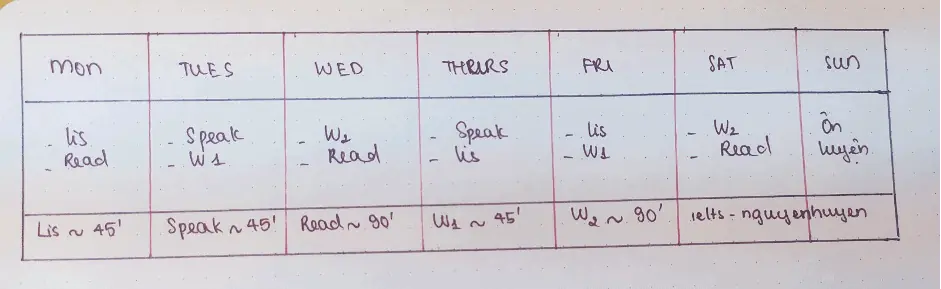 MON TUES WED THRURS FRI SAT SUN
- Lis - Speak - W2 - Speak - Lis - W2 Ôn
- Read - W1 - Read - Lis - W1 - Read luyện
Lis ~ 45' Speak ~ 45' Read ~ 90' W1 ~ 45' W2 ~ 90' ielts - nguyenhuyen